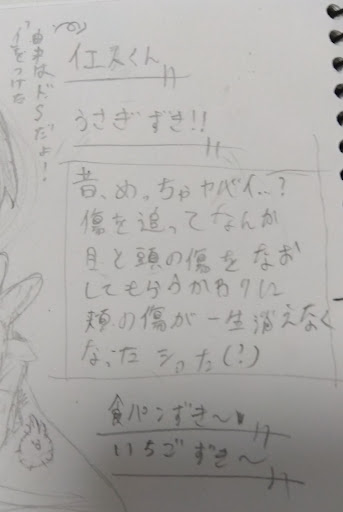 イエスくん
由来はドSだよ!
イをつけた
うさぎずき!!
昔、めっちゃヤバイ…?
傷を追ってなんか
目と頭の傷をなお
してもらうかわりに
頬の傷が一生消えなく
なった (?)
食パンずき〜
いちごずき〜